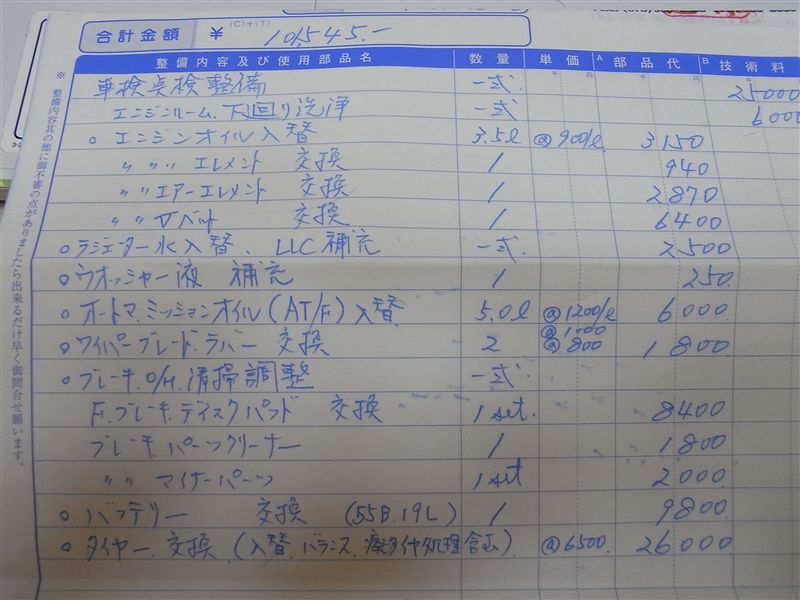 (C)+(T)
合計金額 ¥ 101,545.-
整備内容及び使用部品名 数量 単価 A 部品代 B 技術料
※整備内容其の他に御不審の点がありましたら出来るだけ早く御問合せ願います。
車検点検整備 一式 25000
エンジンルーム、下回り洗浄 一式 6000
○エンジンオイル入替 3.5l @900/l 3150
〃〃〃エレメント 交換 1 940
〃〃エアーエレメント 交換 1 2870
〃〃Vベルト 交換 1 6400
○ラジエーター水入替、LLC補充 一式 2500
○ウオッシャー液 補充 1 250
○オートマ、ミッションオイル(AT/F)入替 5.0l @1200/l 6000
○ワイパーブレード、ラバー 交換 2 @1000 @800 1800
○ブレーキ、O/H、清掃調整 一式
F.ブレーキ、ディスクパッド 交換 1set. 8400
ブレーキ、パーツクリーナー 1 1800
〃〃 マイナーパーツ 1set 2000
○バッテリー 交換 (55B.19L) 1 9800
○タイヤー交換(入替、バランス、廃タイヤ処理含ム) @6500 26000